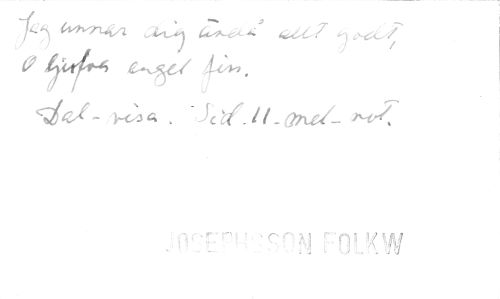 Jag unnar dig ändå allt godt,
O ljufva engel fin.
Dal-visa. Sid. 11. mel-not.
JOSEPHSSON FOLKW